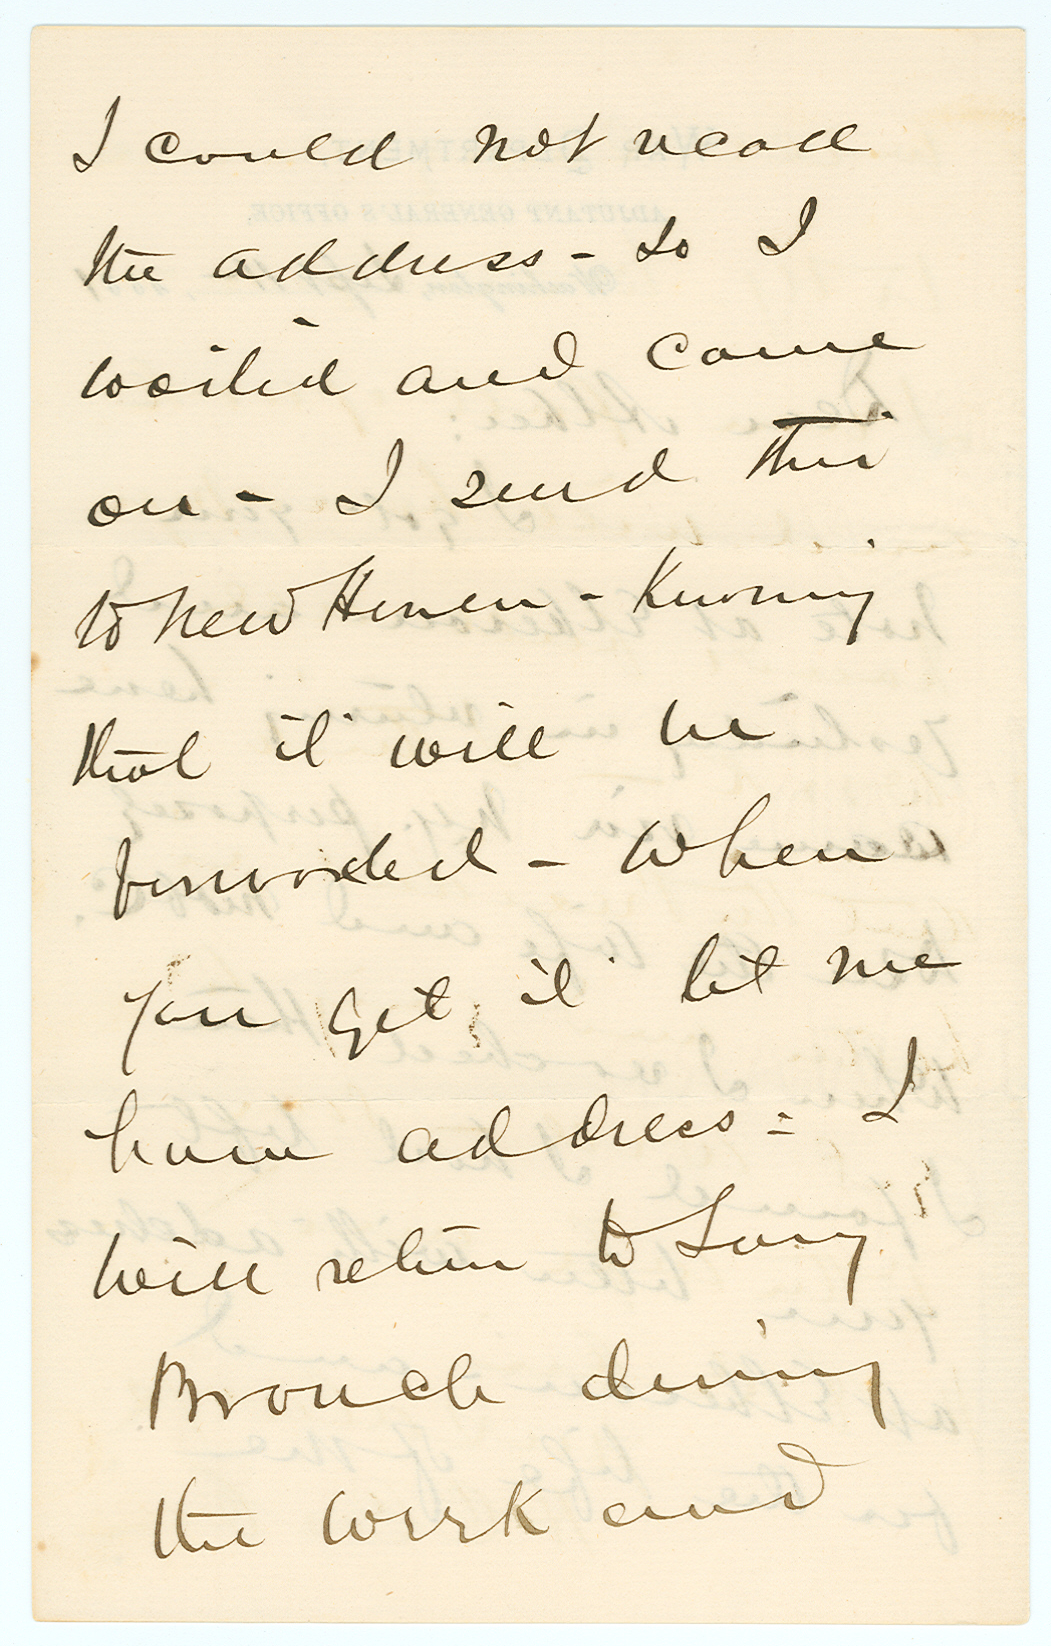 I could not read
the address - so I
waited and came
on - I send this
to New Haven - Knowing
that it will be
forwarded - When
you get it let me
have address - I
will return to Long
Branch during
the week and